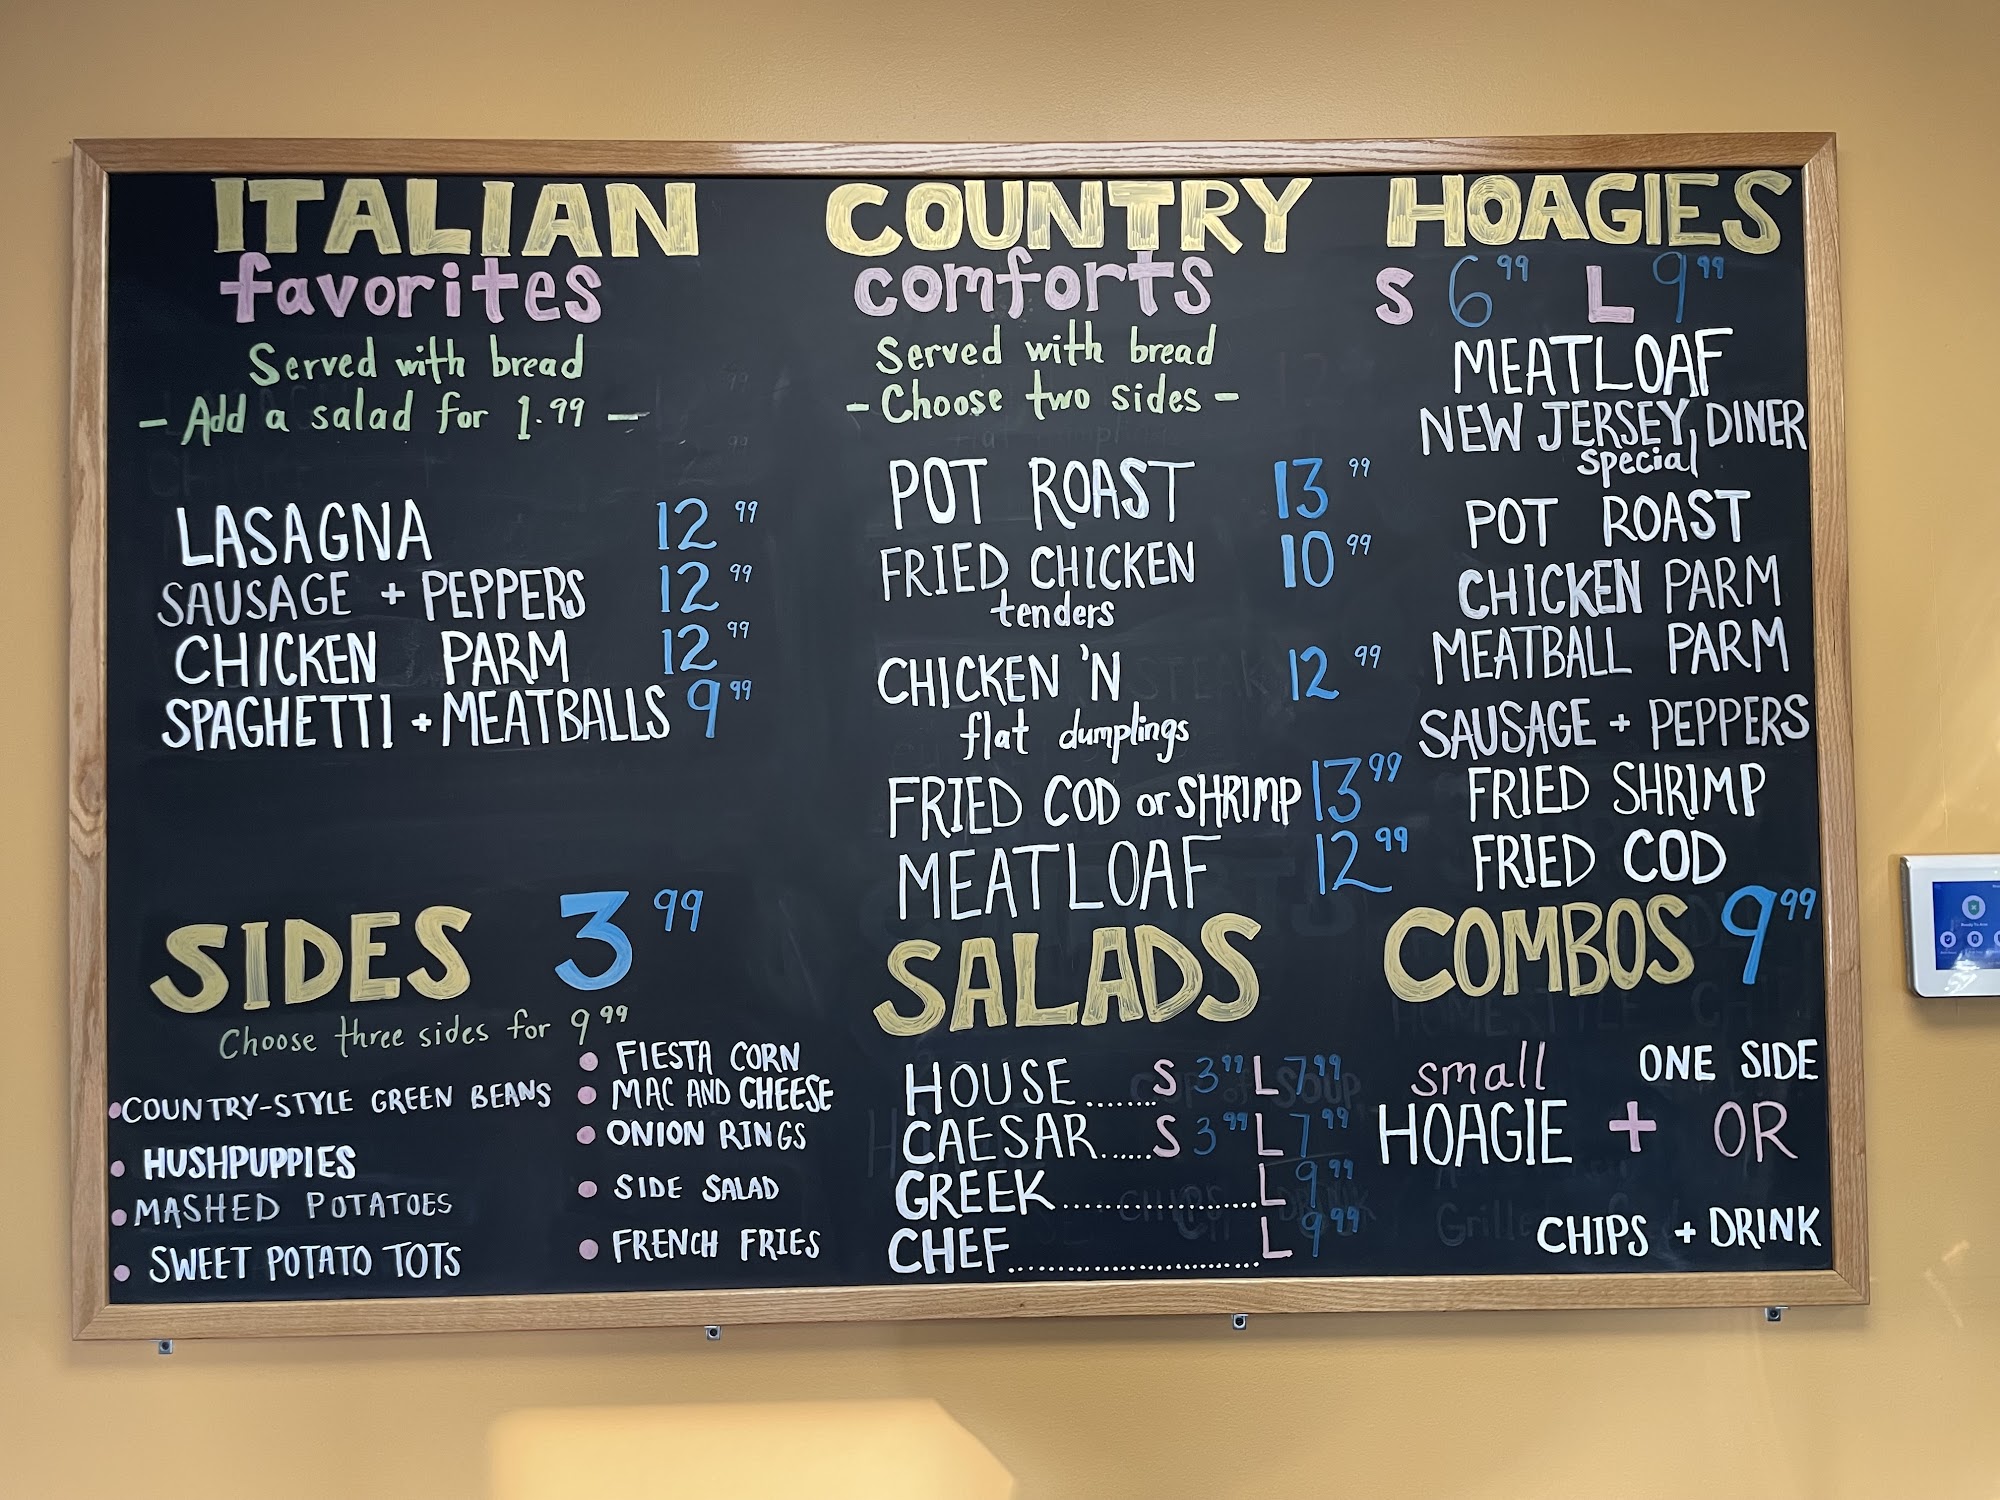 ITALIAN
favorites
Served with bread
- Add a salad for 1.99 -
LASAGNA 12 99
SAUSAGE + PEPPERS 12 99
CHICKEN PARM 12 99
SPAGHETTI + MEATBALLS 9 99
SIDES 3 99
Choose three sides for 9 99
COUNTRY-STYLE GREEN BEANS
HUSHPUPPIES
MASHED POTATOES
SWEET POTATO TOTS
FIESTA CORN
MAC AND CHEESE
ONION RINGS
SIDE SALAD
FRENCH FRIES
COUNTRY
comforts
Served with bread
- Choose two sides -
POT ROAST 13 99
FRIED CHICKEN 10 99
tenders
CHICKEN 'N 12 99
flat dumplings
FRIED COD or SHRIMP 13 99
MEATLOAF 12 99
SALADS
HOUSE........S 3 99 L 7 99
CAESAR......S 3 99 L 7 99
GREEK....................L 9 99
CHEF..........................L 9 99
HOAGIES
S 6 99 L 9 99
MEATLOAF
NEW JERSEY DINER
special
POT ROAST
CHICKEN PARM
MEATBALL PARM
SAUSAGE + PEPPERS
FRIED SHRIMP
FRIED COD
COMBOS 9 99
small ONE SIDE
HOAGIE + OR
CHIPS + DRINK